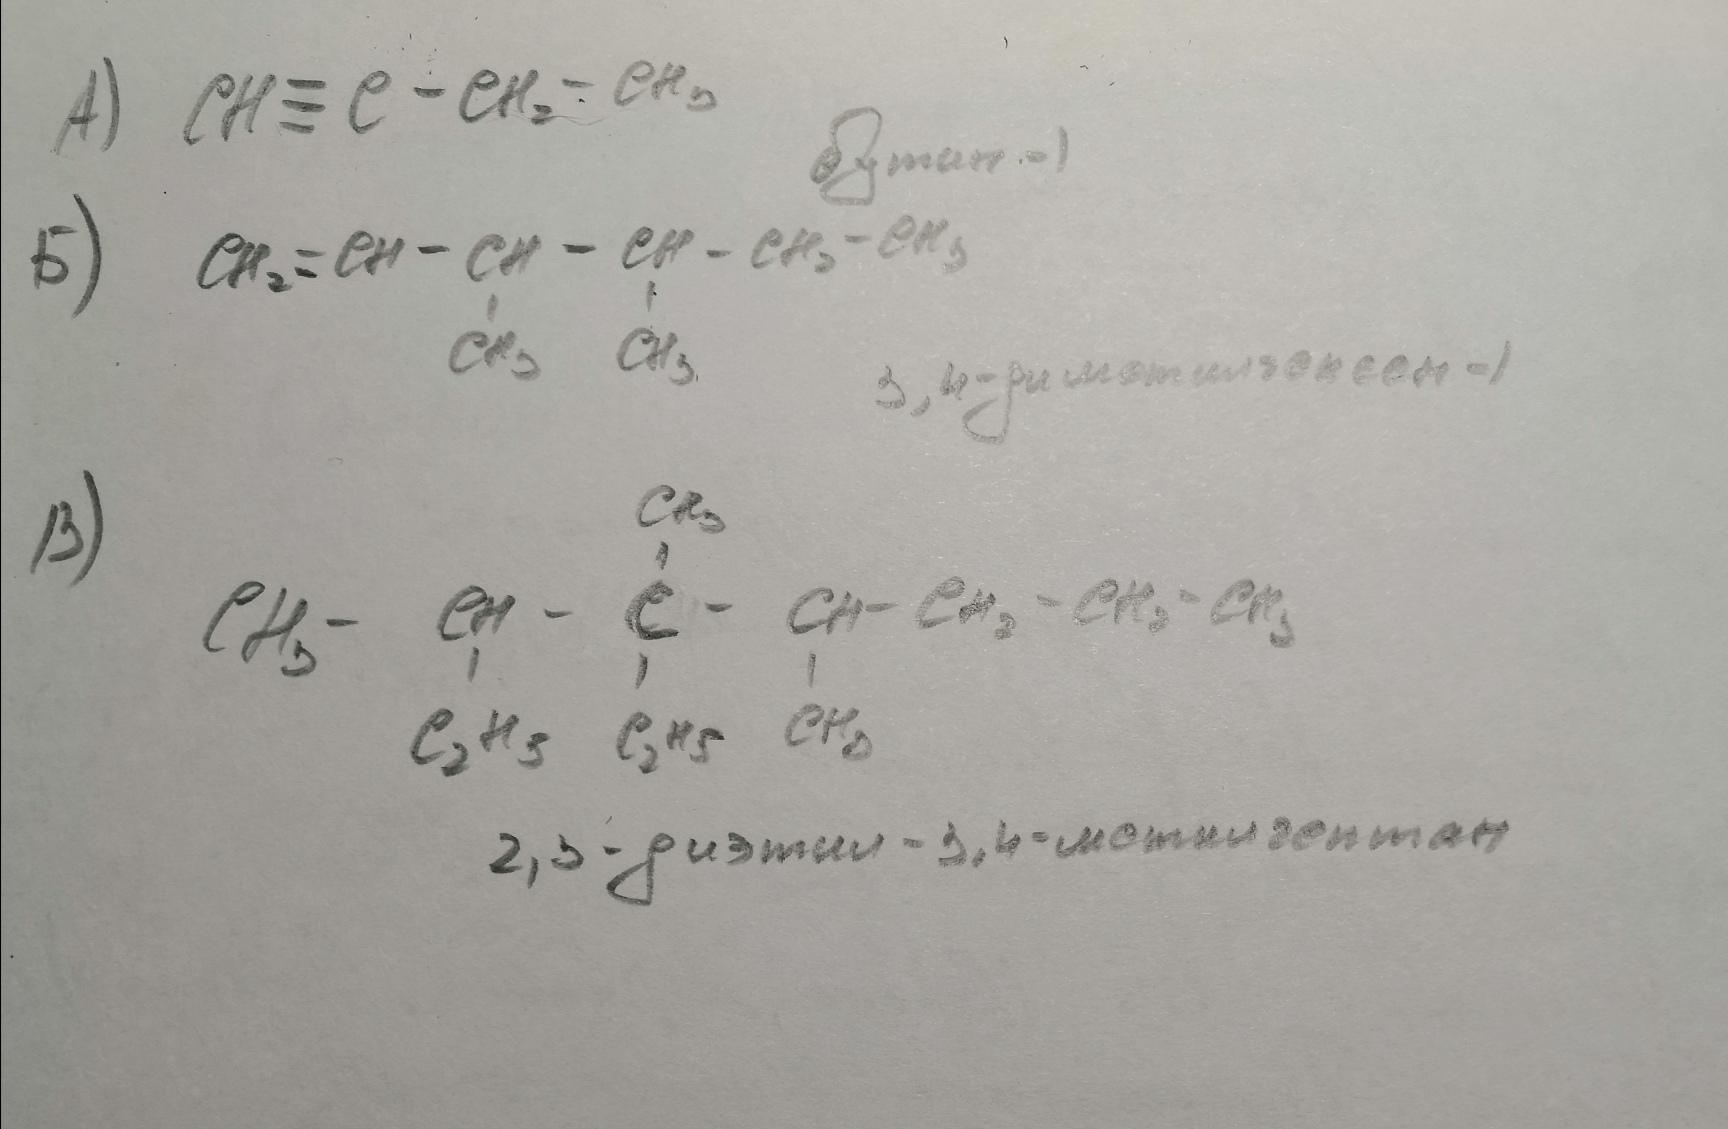 А) CH≡C-CH₂-CH₃
бутин-1
Б) CH₂=CH-CH-CH-CH₂-CH₃
CH₃ CH₃
3,4-диметилгексен-1
В)
CH₃
CH₃-CH-C-CH-CH₂-CH₂-CH₃
C₂H₅ C₂H₅ CH₃
2,3-диэтил-3,4-метилгептан